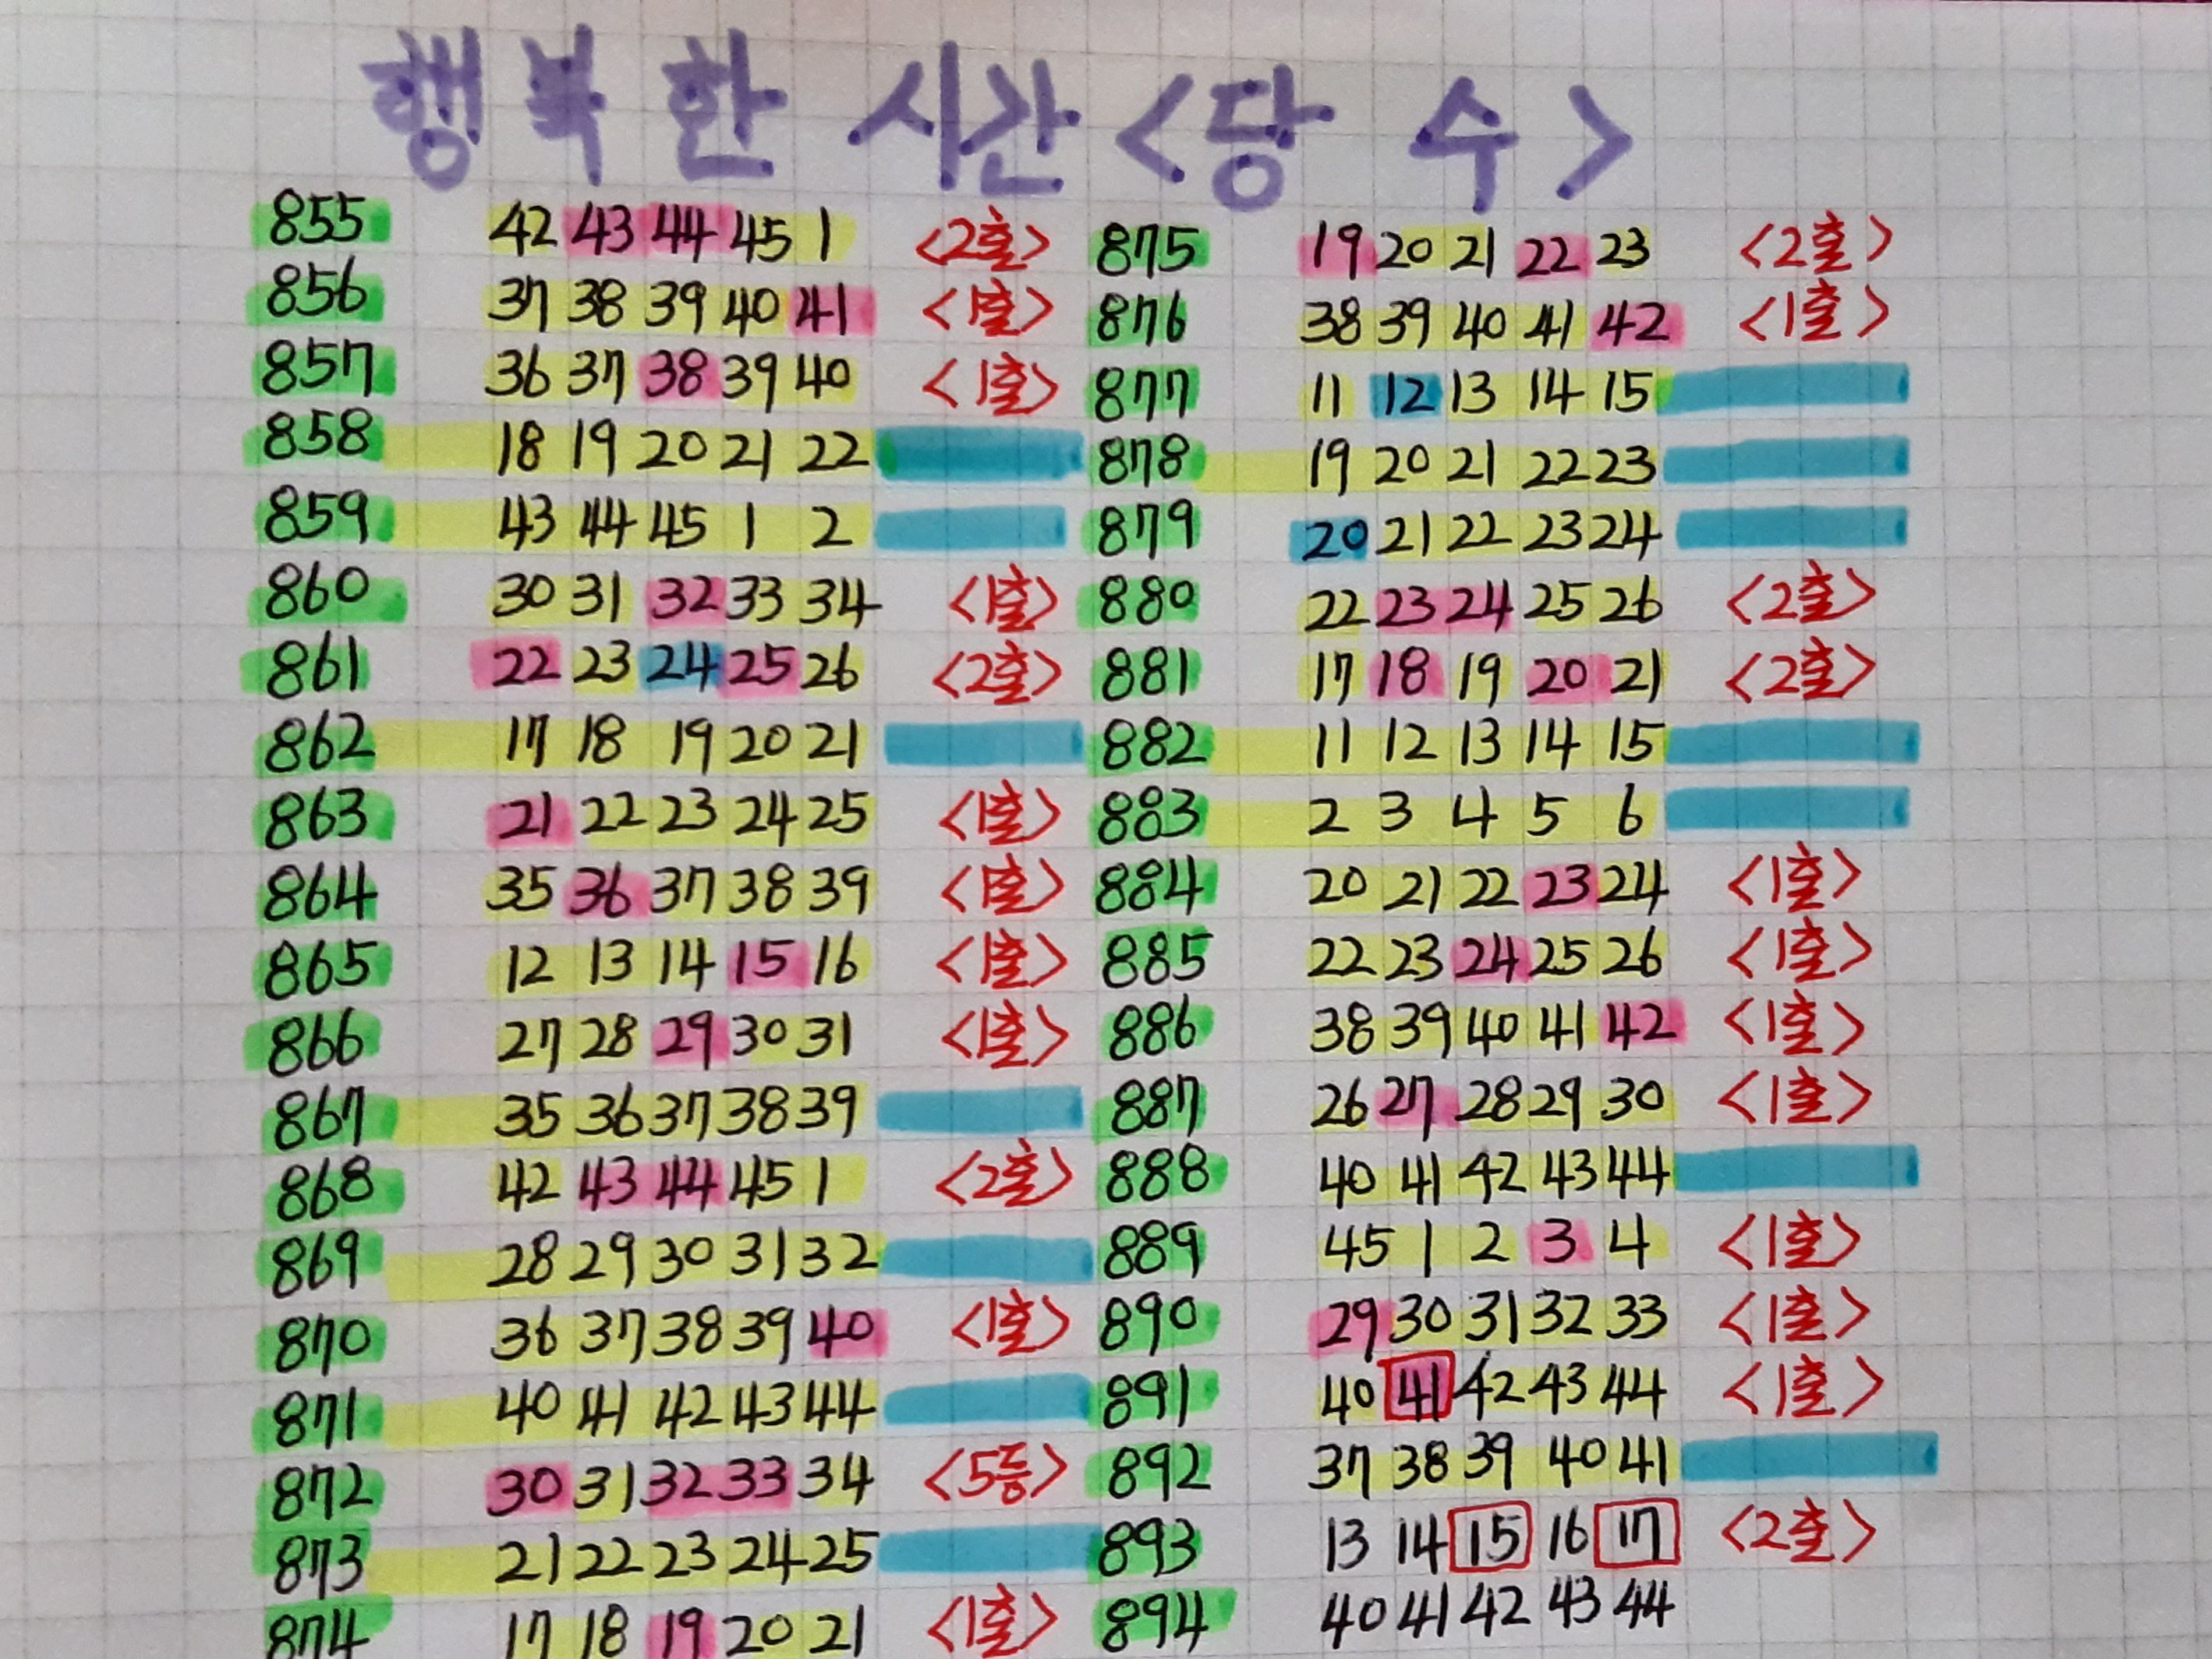 행복한 시간 <당 수>
855 42 43 44 45 1 <2출>
856 37 38 39 40 41 <1출>
857 36 37 38 39 40 <1출>
858 18 19 20 21 22
859 43 44 45 1 2
860 30 31 32 33 34 <1출>
861 22 23 24 25 26 <2출>
862 17 18 19 20 21
863 21 22 23 24 25 <1출>
864 35 36 37 38 39 <1출>
865 12 13 14 15 16 <1출>
866 27 28 29 30 31 <1출>
867 35 36 37 38 39
868 42 43 44 45 1 <2출>
869 28 29 30 31 32
870 36 37 38 39 40 <1출>
871 40 41 42 43 44
872 30 31 32 33 34 <5등>
873 21 22 23 24 25
874 17 18 19 20 21 <1출>
875 19 20 21 22 23 <2출>
876 38 39 40 41 42 <1출>
877 11 12 13 14 15
878 19 20 21 22 23
879 20 21 22 23 24
880 22 23 24 25 26 <2출>
881 17 18 19 20 21 <2출>
882 11 12 13 14 15
883 2 3 4 5 6
884 20 21 22 23 24 <1출>
885 22 23 24 25 26 <1출>
886 38 39 40 41 42 <1출>
887 26 27 28 29 30 <1출>
888 40 41 42 43 44
889 45 1 2 3 4 <1출>
890 29 30 31 32 33 <1출>
891 40 41 42 43 44 <1출>
892 37 38 39 40 41
893 13 14 15 16 17 <2출>
894 40 41 42 43 44